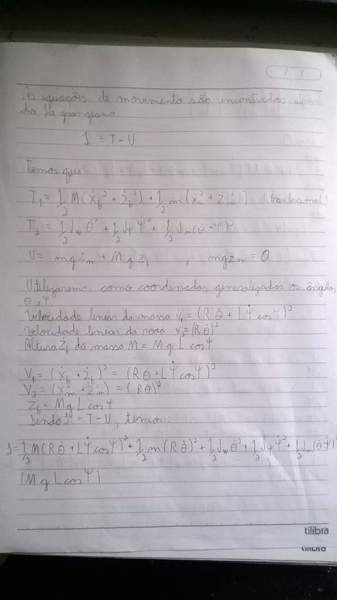 As equações de movimento são encontradas
do lagrangiano
L = T - U
Temos que
T₁ = 1/2 M(ẋ₁² + ż₁²) + 1/2 m(ẋ² + ż ) (translacional)
T₂ = 1/2 Jw θ̇² + 1/2 Jψ ψ̇² + 1/2 Jm(θ̇-ψ̇)²
U = mgZm + MgZ₁ , mgzm = 0
Utilizaremos como coordenadas generalizadas os ângulos
θ, ψ
Velocidade linear da massa v₁=(Rθ̇ + Lψ̇ cosψ)²
Velocidade linear da roda v₂=(Rθ̇)²
Altura Z₁ da massa M = MgLcosψ
V₁ = (ẋ₁ + ż₁)² = (Rθ̇ + Lψ̇ cosψ)²
V₂ = (ẋm² + żm²) = (Rθ̇)²
Z₁ = MgLcosψ
Sendo L = T - U, temos:
L=1/2 M(Rθ̇ + Lψ̇ cosψ)² + 1/2 m(Rθ̇)² + 1/2 Jw θ̇² + 1/2 Jψ ψ̇² + 1/2 Jm(θ̇ ψ̇)²
(MgLcosψ)
tilibra
tilibra